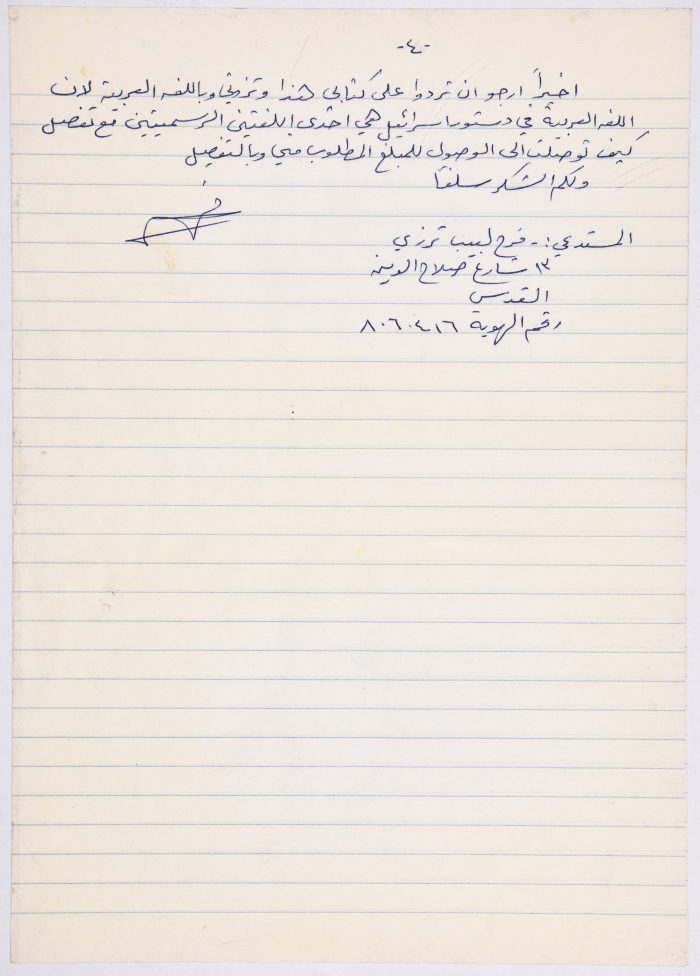 -٤-
اخيراً ارجو ان تردوا على كتابي هذا وباللغه العربية لان
اللغه العربية في دستور اسرائيل هي احدى اللغتين الرسميتين مع تفصيل
كيف توصلت الى الوصول للمبلغ المطلوب مني وبالتفصيل
ولكم الشكر سلفا
المستدعي :- فرح لبيب ترزي
١٣ شارع صلاح الدين
القدس
رقم الهوية ٨٠٦٠٤١٦